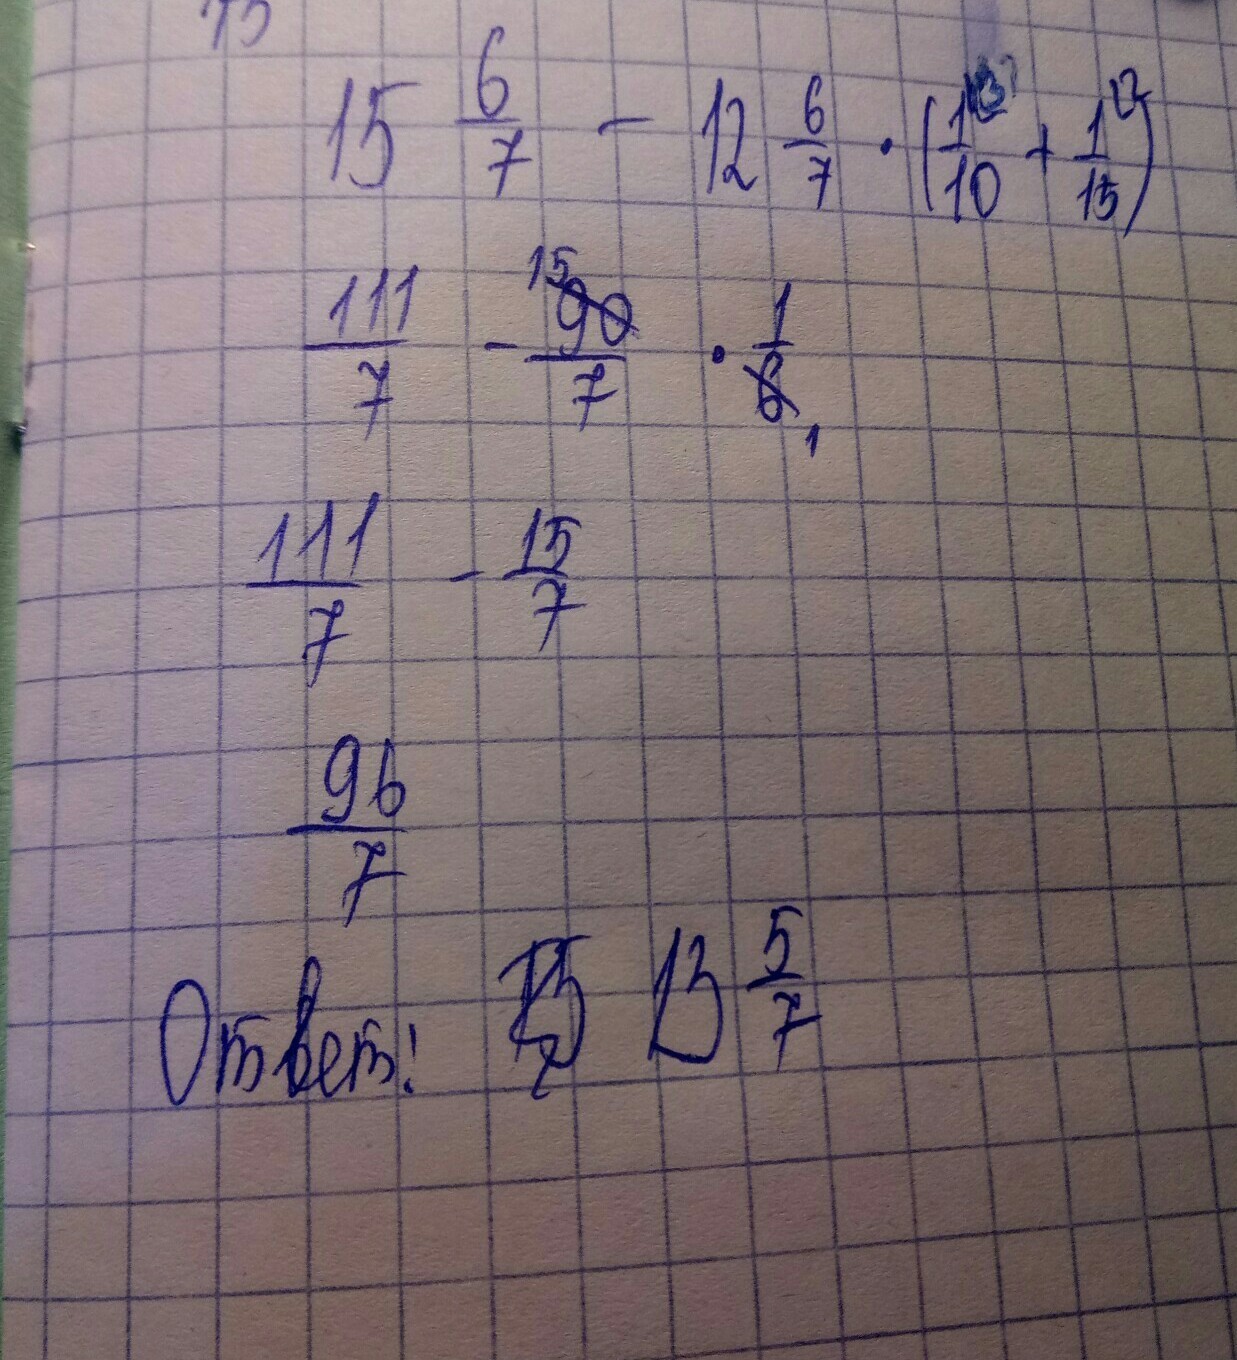 15 6/7 - 12 6/7 · (1/10 + 1/15)
111/7 - 90/7 · 1/6
15 1
111/7 - 15/7
96/7
Ответ: 13 5/7